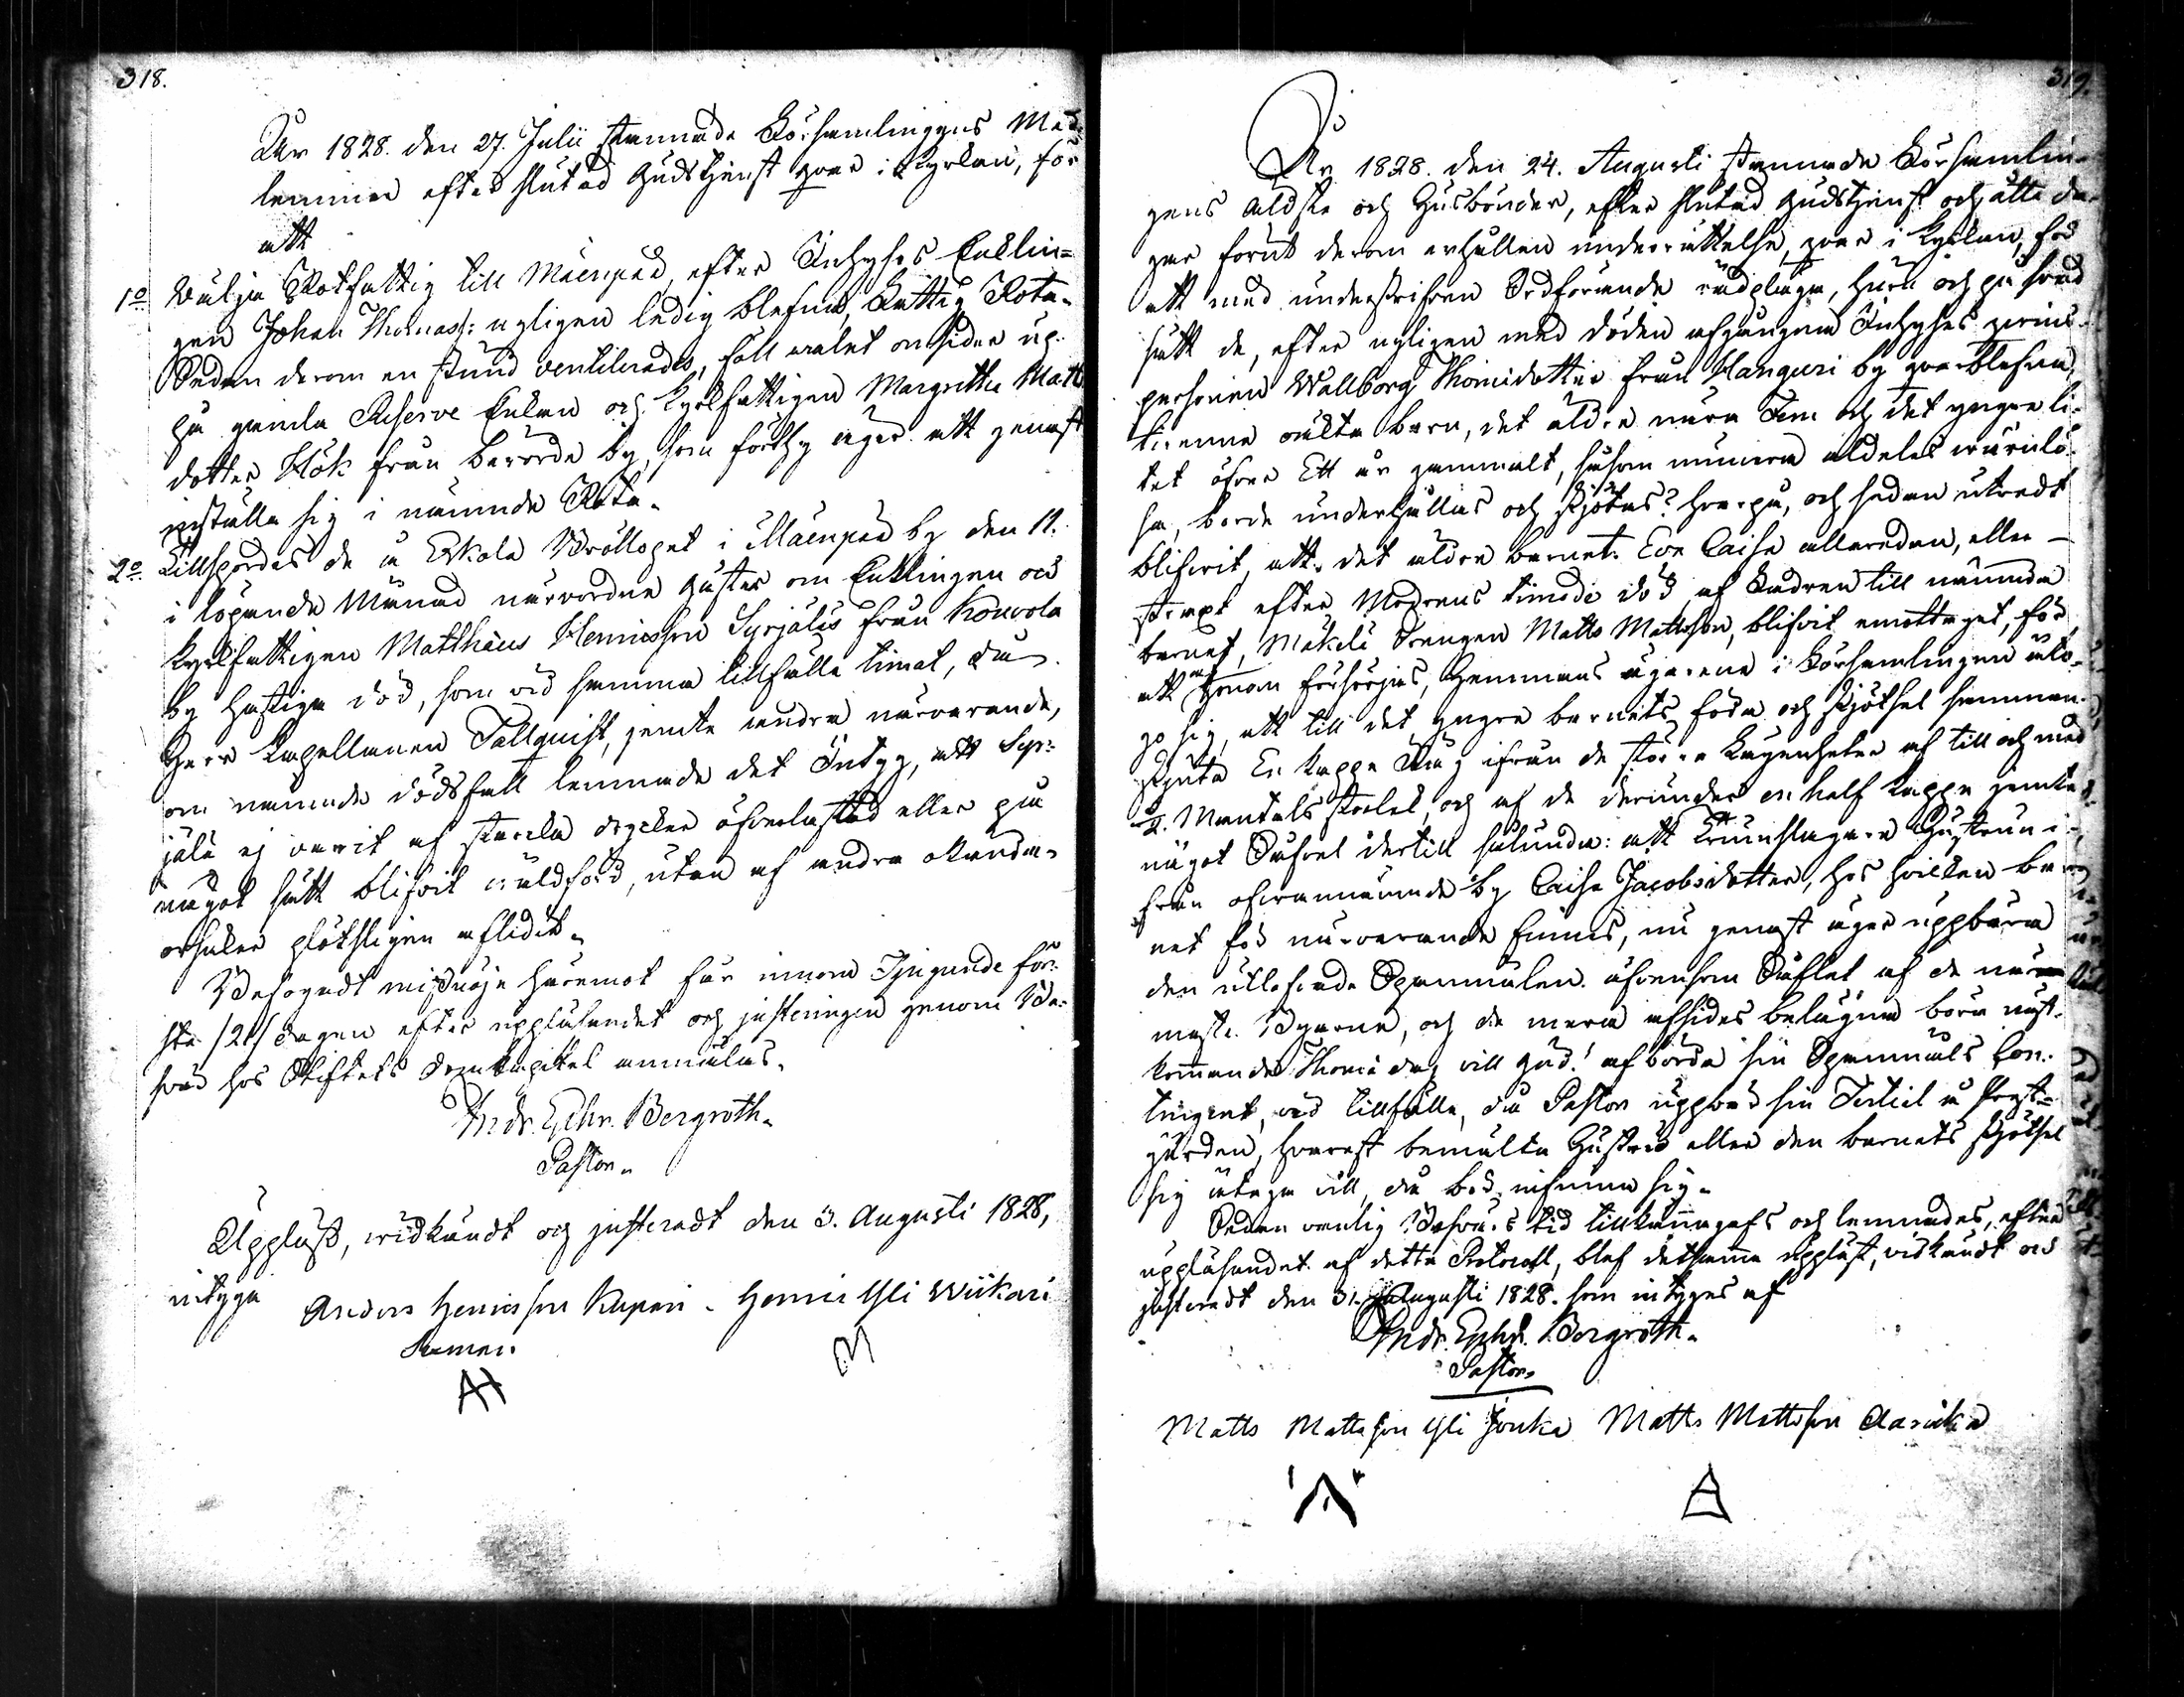 318.
År 1828. den 27. Julii stannade Församlingens Med-
lemmar efter slutad Gudstjenst qvar i Kyrkan, för
att
1o Wälja Rotfattig till Mäenpää, efter Inhyses Enklin-
gen Johan Thomass: nyligen ledig blefna, Fattig Rota.
Sedan derom en stund ventilerades, föll valet omsider up-
på gamla Reserve Enkan och Kyrkfattigen Margretha Matts
dotter Hök från berörde by, som förthy äger att genast
inställa sig i nämnde Rota.
2o Tillspordes de å Eskola Bröllopet i Mäenpää by den 11.
i löpande Månad närvordne Gäster om Enklingen och
Kyrkfattigen Matthæus Henricsson Syrjäläs från Kouvola
by hastiga död, som vid samma tillfälle timat, då
Herr Kapellanen Tallquist, jemte andra närvarande,
om nämnde dödsfall lemnade det Intyg, att Syr-
jälä ej varit af starcka drycker öfverlastad eller på
något sätt blifvit våldförd, utan af andra okända
orsaker plötsligen aflidit.
Befogadt missnöje häremot får innom Tjugunde för-
sta /21/ dagen efter uppläsandet och justeringen genom Be-
svär hos Stiftets Domkapitel anmälas.
Andr. Ephr. Bergroth.
Pastor.
Uppläst, vidkändt och justeradt den 3. Augusti 1828,
intyga
Anders Henricsson Kupari. Henric Yli Wiikari
AH
319.
År 1828. den 24. Augusti stannade Församlin-
gens äldste och Husbönder, efter slutad Gudstjenst och åtta da-
gar förut derom erhållen underrättelse, qvar i Kyrkan, för
att med underskrifven Ordförande rådpläga, huru och på hvad
sätt de, efter nyligen med döden afgångna Inhyses qvins-
personen Wallborg Thomædotter från Hanguri by qvarblefna,
tvenne oäkta barn, det äldre nära Fem och det yngre li-
tet öfver Ett år gammalt, såsom numera aldeles värnlö-
sa, borde underhållas och skjötas? hvarpå, och sedan utredt
blifvit, att det äldre barnet Eva Caisa allaredan, eller
straxt efter Modrens timade död af Fadren till nämnda
barnet, Mäkelä Drengen Matts Mattsson, blifvit emottaget, för
att af honom försörjas, Hemmans ägarena i Församlingen åto-
go sig, att till det yngre barnets föda och skjötsel samman-
skjuta En kappa Råg ifrån de större Lägenheter af till och med
Mantals storlek, och af de derunder en half kappa jemte
något Sufvel dertill sålunda: att Krunslagare Hustrun i-
från ofvannämnde by Caisa Jacobsdotter, hos hvilken bar-
net för närvarande finnes, nu genast äger uppbära
den utlofvade Spannmålen äfvensom Suflet af de när-
maste Byarna, och de mera afsides belägna böra näst-
kommande Thomæ dag, vill Gud! afbörda sin Spannmåls Con-
tingent, vid tillfälle, då Pastor uppbär sin Tertial å Prest-
gården, hvarest bemälta Hustru eller den barnets skjötsel
sig åtaga vill, då bör infinna sig.
Sedan vanlig Besvärs tid tillkännagafs och lemnades, efter
uppläsandet af detta Protocoll, blef detsamma uppläst, vidkändt och
justeradt den 31. Augusti 1828. som intyges af
Andr. Ephr. Bergroth.
Pastor.
Matts Mattsson Yli Jouka Matts Mattsson